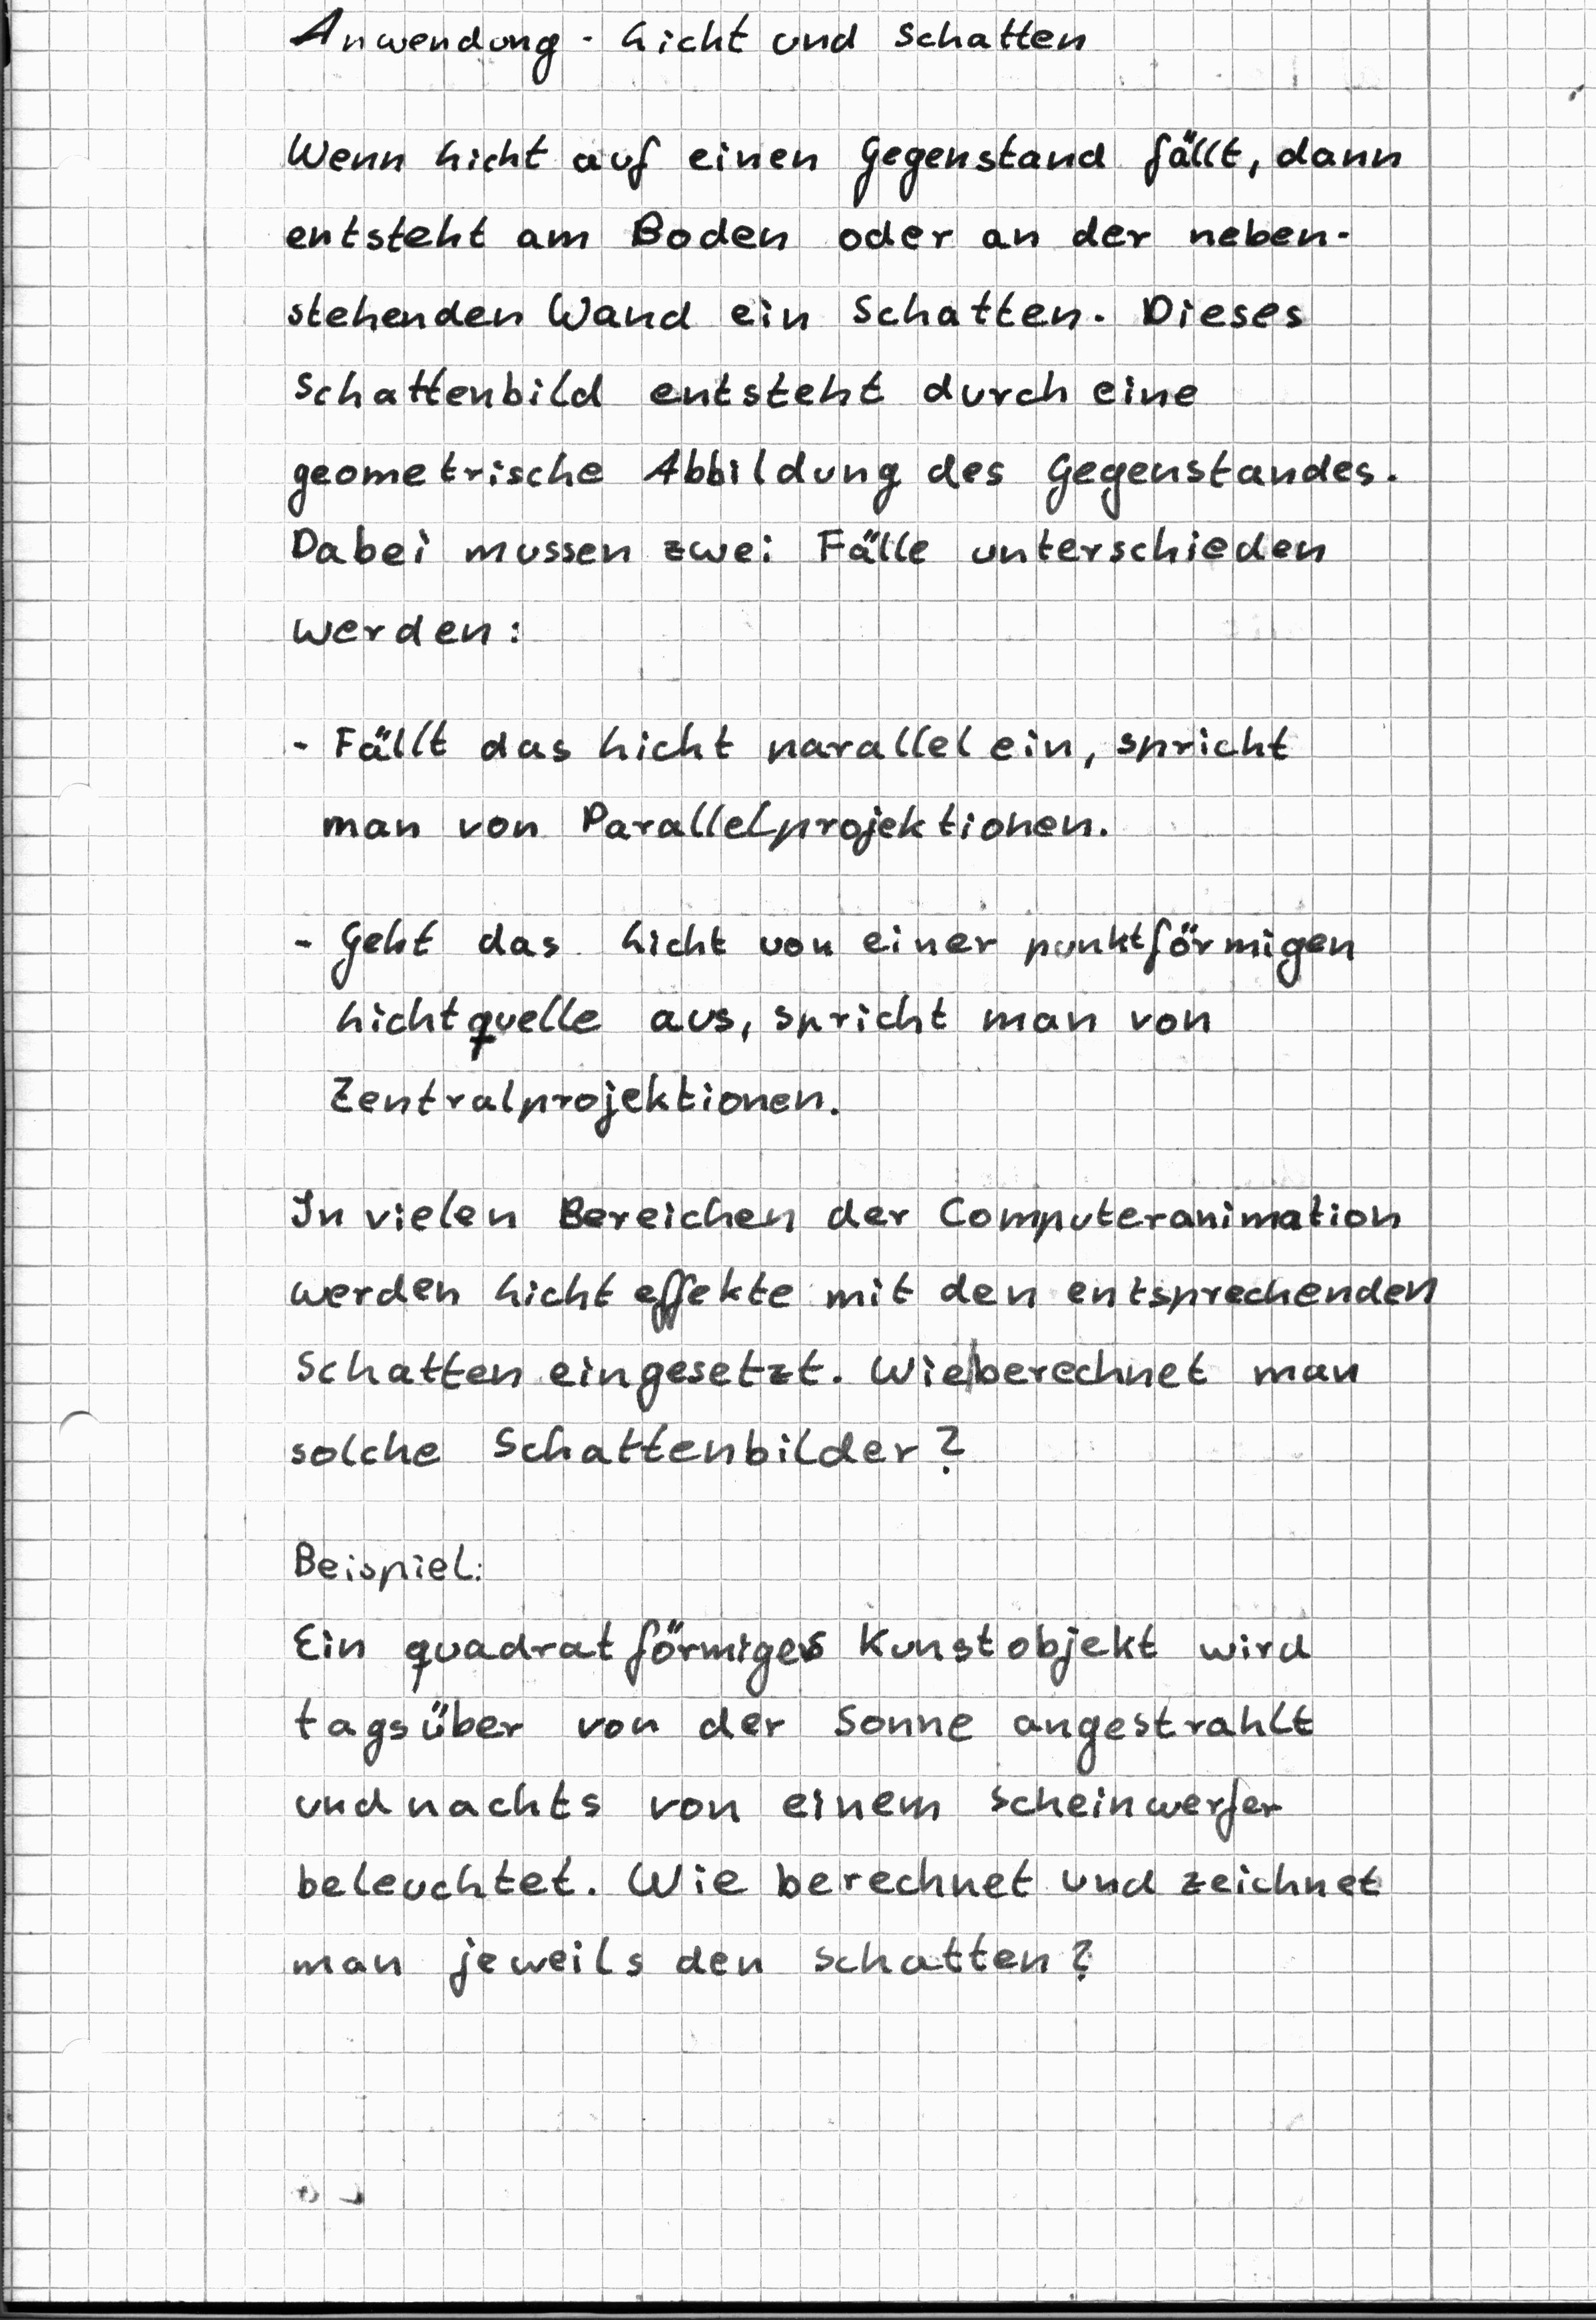 Anwendung - Licht und Schatten
Wenn Licht auf einen Gegenstand fällt, dann
entsteht am Boden oder an der neben-
stehenden Wand ein Schatten. Dieses
Schattenbild entsteht durch eine
geometrische Abbildung des Gegenstandes.
Dabei mussen zwei Fälle unterschieden
werden:
- Fällt das Licht parallel ein, spricht
man von Parallelprojektionen.
- Geht das Licht von einer punktförmigen
Lichtquelle aus, spricht man von
Zentralprojektionen.
In vielen Bereichen der Computeranimation
werden Lichteffekte mit den entsprechenden
Schatten eingesetzt. Wie berechnet man
solche Schattenbilder?
Beispiel:
Ein quadratförmiges Kunstobjekt wird
tagsüber von der Sonne angestrahlt
und nachts von einem Scheinwerfer
beleuchtet. Wie berechnet und zeichnet
man jeweils den Schatten?